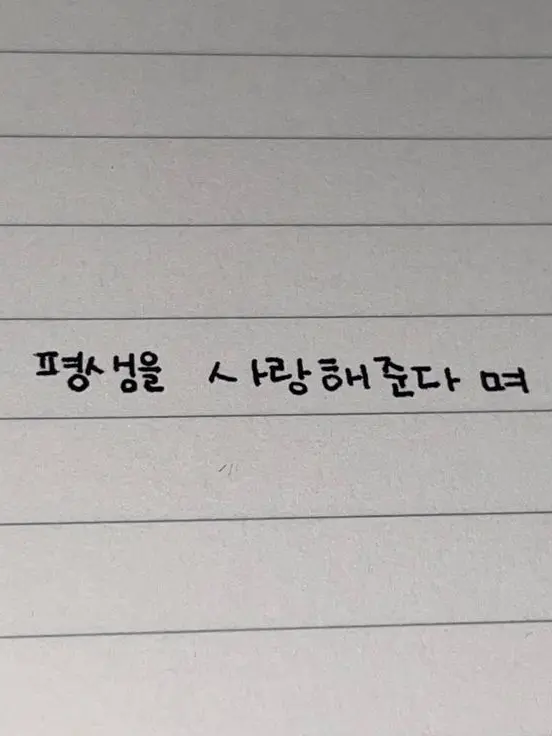 평생을 사랑해준다 며